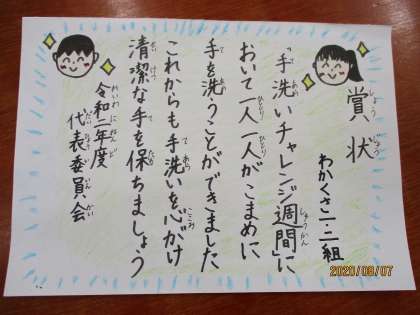 賞状
わかくさ一・二組
「手洗いチャレンジ週間」に
おいて一人一人がこまめに
手を洗うことができました
これからも手洗いを心がけ
清潔な手を保ちましょう
令和二年度
代表委員会
2020/09/07